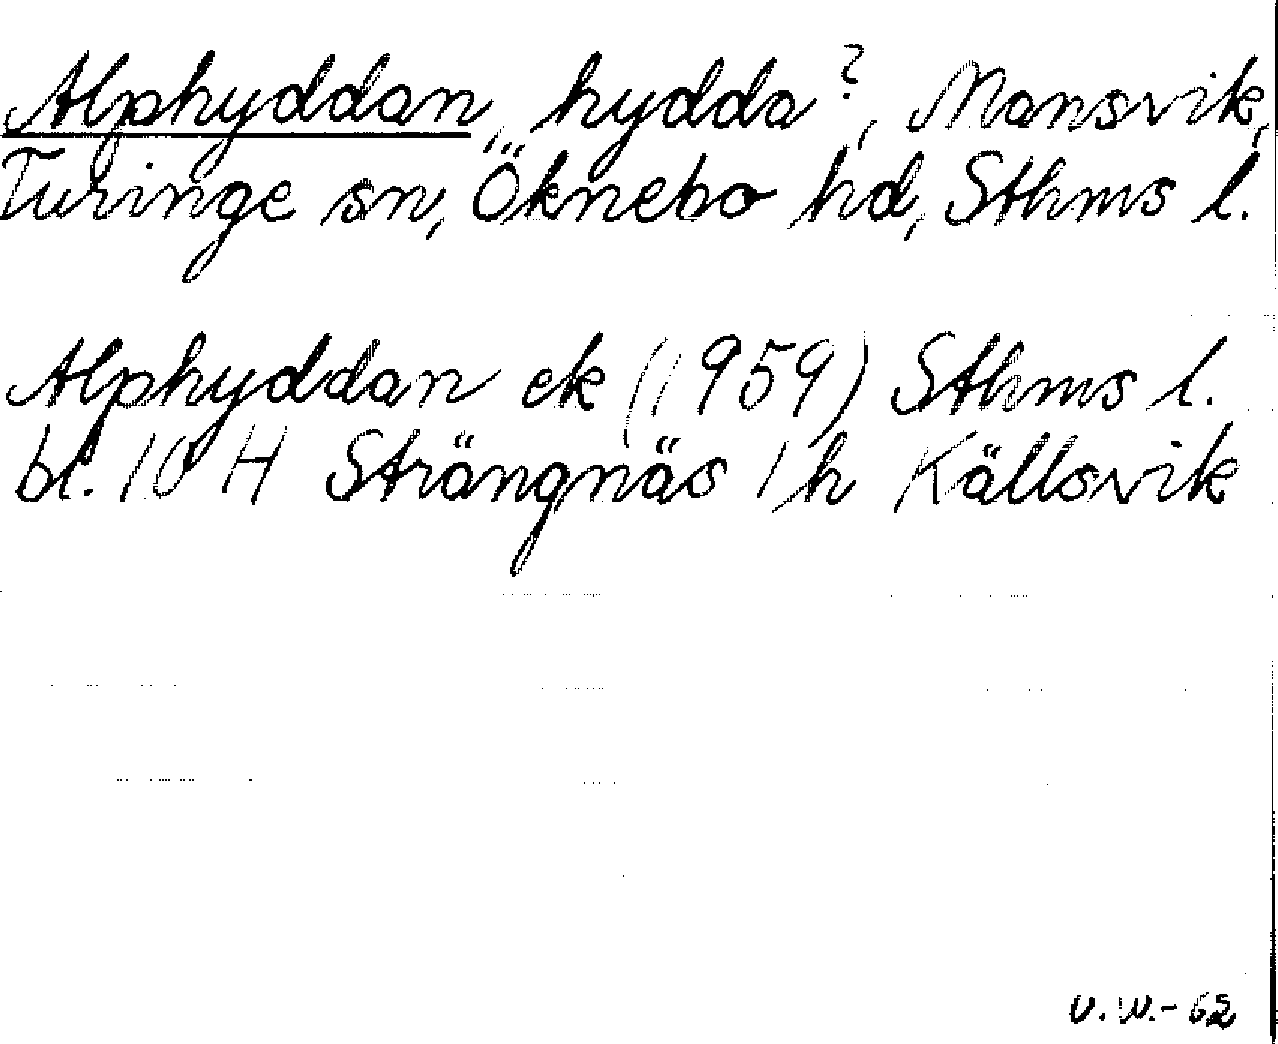 Alphyddan, hydda?, Mansvik,
Turinge sn, Öknebo hd, Sthms l.
Alphyddan ek (1959) Sthms l.
bl. 10 H Strängnäs 1 h Källsvik
U.W.-62